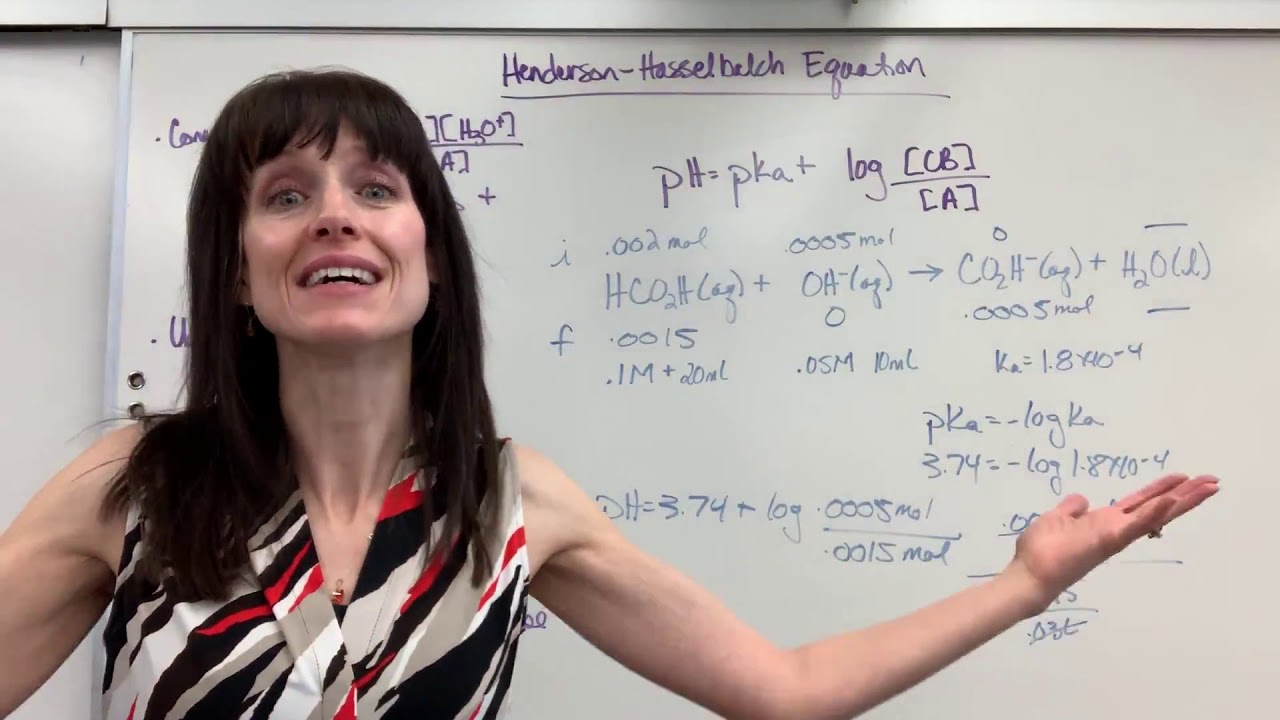 Henderson-Hasselbalch Equation
][H₃O⁺]
A]
+
pH=pKa+ log [CB]
[A]
i .002 mol .0005 mol 0 —
HCO₂H(aq) + OH⁻(aq) → CO₂H⁻(aq) + H₂O(l)
0 .0005 mol —
f .0015
.1M + 20ml .05M 10ml Ka=1.8×10⁻⁴
pKa=-log Ka
3.74=-log 1.8×10⁻⁴
pH=3.74 + log .0005 mol
.0015 mol